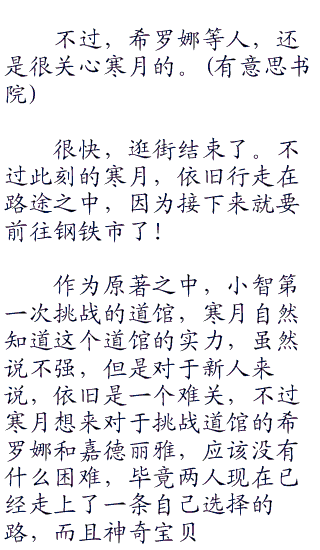 不过，希罗娜等人，还
是很关心寒月的。(有意思书
院)
很快，逛街结束了。不
过此刻的寒月，依旧行走在
路途之中，因为接下来就要
前往钢铁市了！
作为原著之中，小智第
一次挑战的道馆，寒月自然
知道这个道馆的实力，虽然
说不强，但是对于新人来
说，依旧是一个难关，不过
寒月想来对于挑战道馆的希
罗娜和嘉德丽雅，应该没有
什么困难，毕竟两人现在已
经走上了一条自己选择的
路，而且神奇宝贝